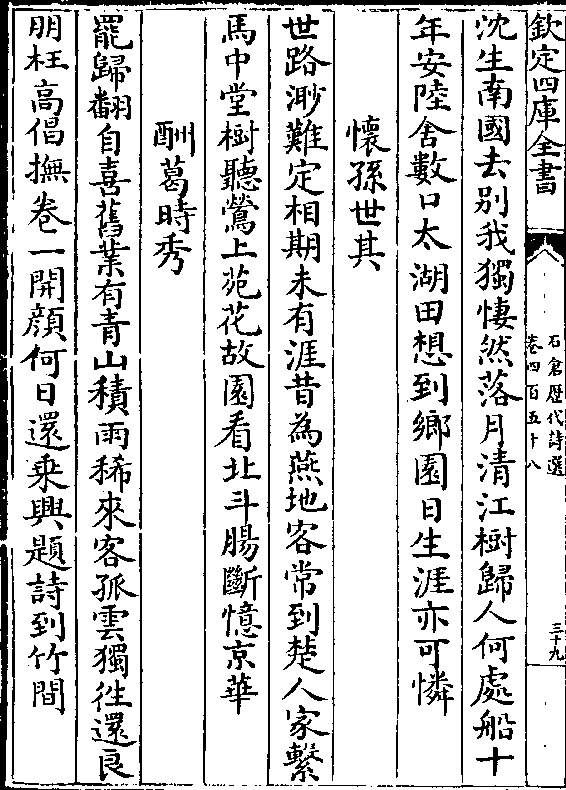 欽定四庫全書
石倉歴代詩選
卷四百五十八
三十九
沈生南國去别我獨悽然落月清江樹歸人何處船十
年安陸舍數口太湖田想到鄉園日生涯亦可憐
懷孫世其
世路渺難定相期未有涯昔為燕地客常到楚人家繫
馬中堂樹聽鶯上苑花故園看北斗腸斷憶京華
酬葛時秀
罷歸翻自喜舊業有青山積雨稀來客孤雲獨徃還良
朋枉高倡撫卷一開顔何日還乗興題詩到竹間